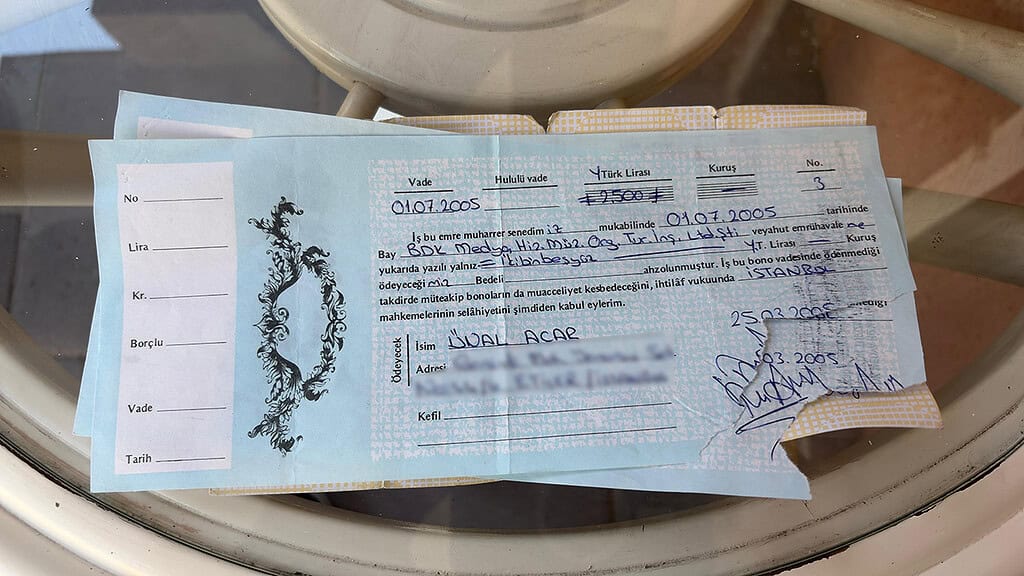 No
Lira
Kr.
Borçlu
Vade
Tarih
Vade Hululü vade YTürk Lirası Kuruş No.
01.07.2005 # 2.500 # — 3
İş bu emre muharrer senedim iz mukabilinde 01.07.2005 tarihinde
Bay BDK Medya Hiz. Müz. Org. Tur. İnş. Ltd. Şti veyahut emrühavale me
yukarıda yazılı yalnız = İkibinbeşyüz Y.T. Lirası = Kuruş
ödeyeceği miz Bedeli ahzolunmuştur. İş bu bono vadesinde ödenmediği
takdirde müteakip bonoların da muacceliyet kesbedeceğini, ihtilâf vukuunda İSTANBUL
mahkemelerinin selâhiyetini şimdiden kabul eylerim.
Ödeyecek
İsim ÜVAL ACAR
25.03.2005
Adresi
03.2005
Kefil